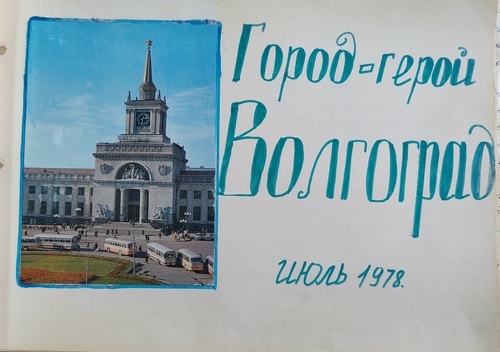 Город-герой
Волгоград
июль 1978.